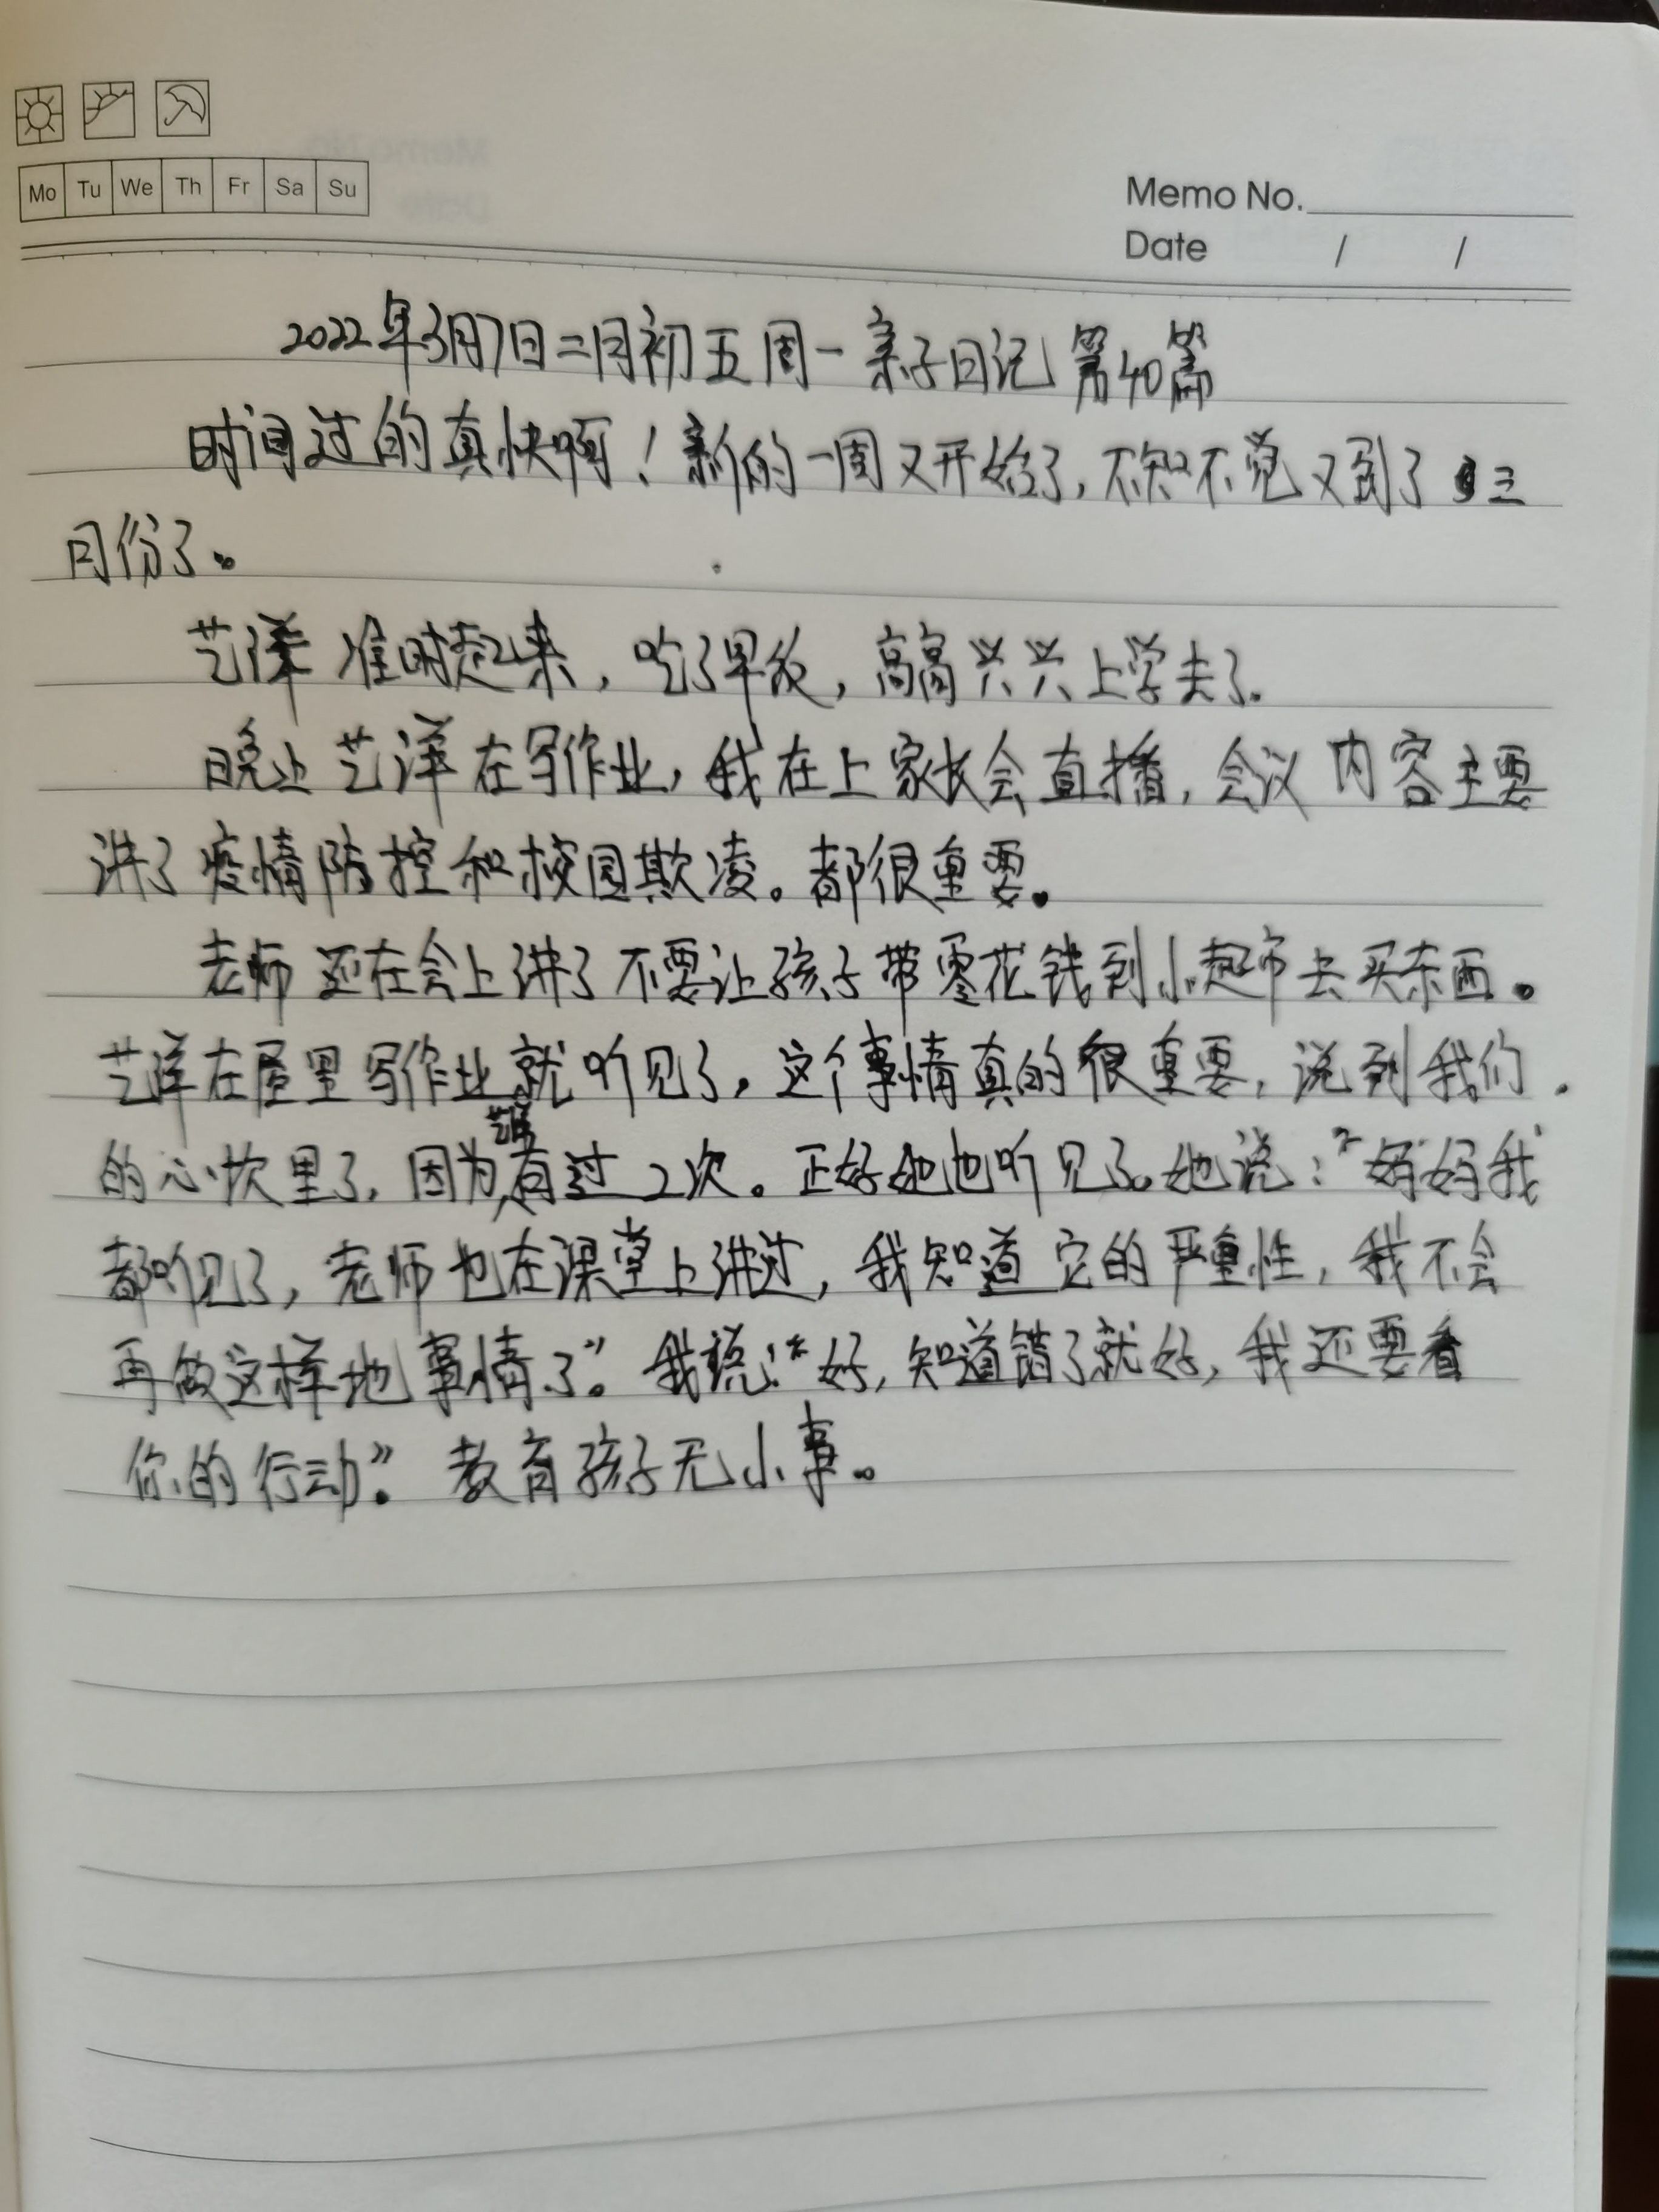 Mo Tu We Th Fr Sa Su
Memo No.
Date / /
2022年3月7日二月初五周一亲子日记 第40篇
时间过的真快啊！新的一周又开始了，不知不觉又到了三
月份了。
艺洋准时起来，吃了早饭，高高兴兴上学去了。
晚上艺洋在写作业，我在上家长会直播，会议内容主要
讲了疫情防控和校园欺凌。都很重要。
老师还在会上讲了不要让孩子带零花钱到小超市去买东西。
艺洋在屋里写作业就听见了，这个事情真的很重要，说到我们
的心坎里了，因为艺洋有过2次。正好她也听见了。她说：“妈妈我
都听见了，老师也在课堂上讲过，我知道它的严重性，我不会
再做这样地事情了”。我说：“好，知道错了就好，我还要看
你的行动”。教育孩子无小事。